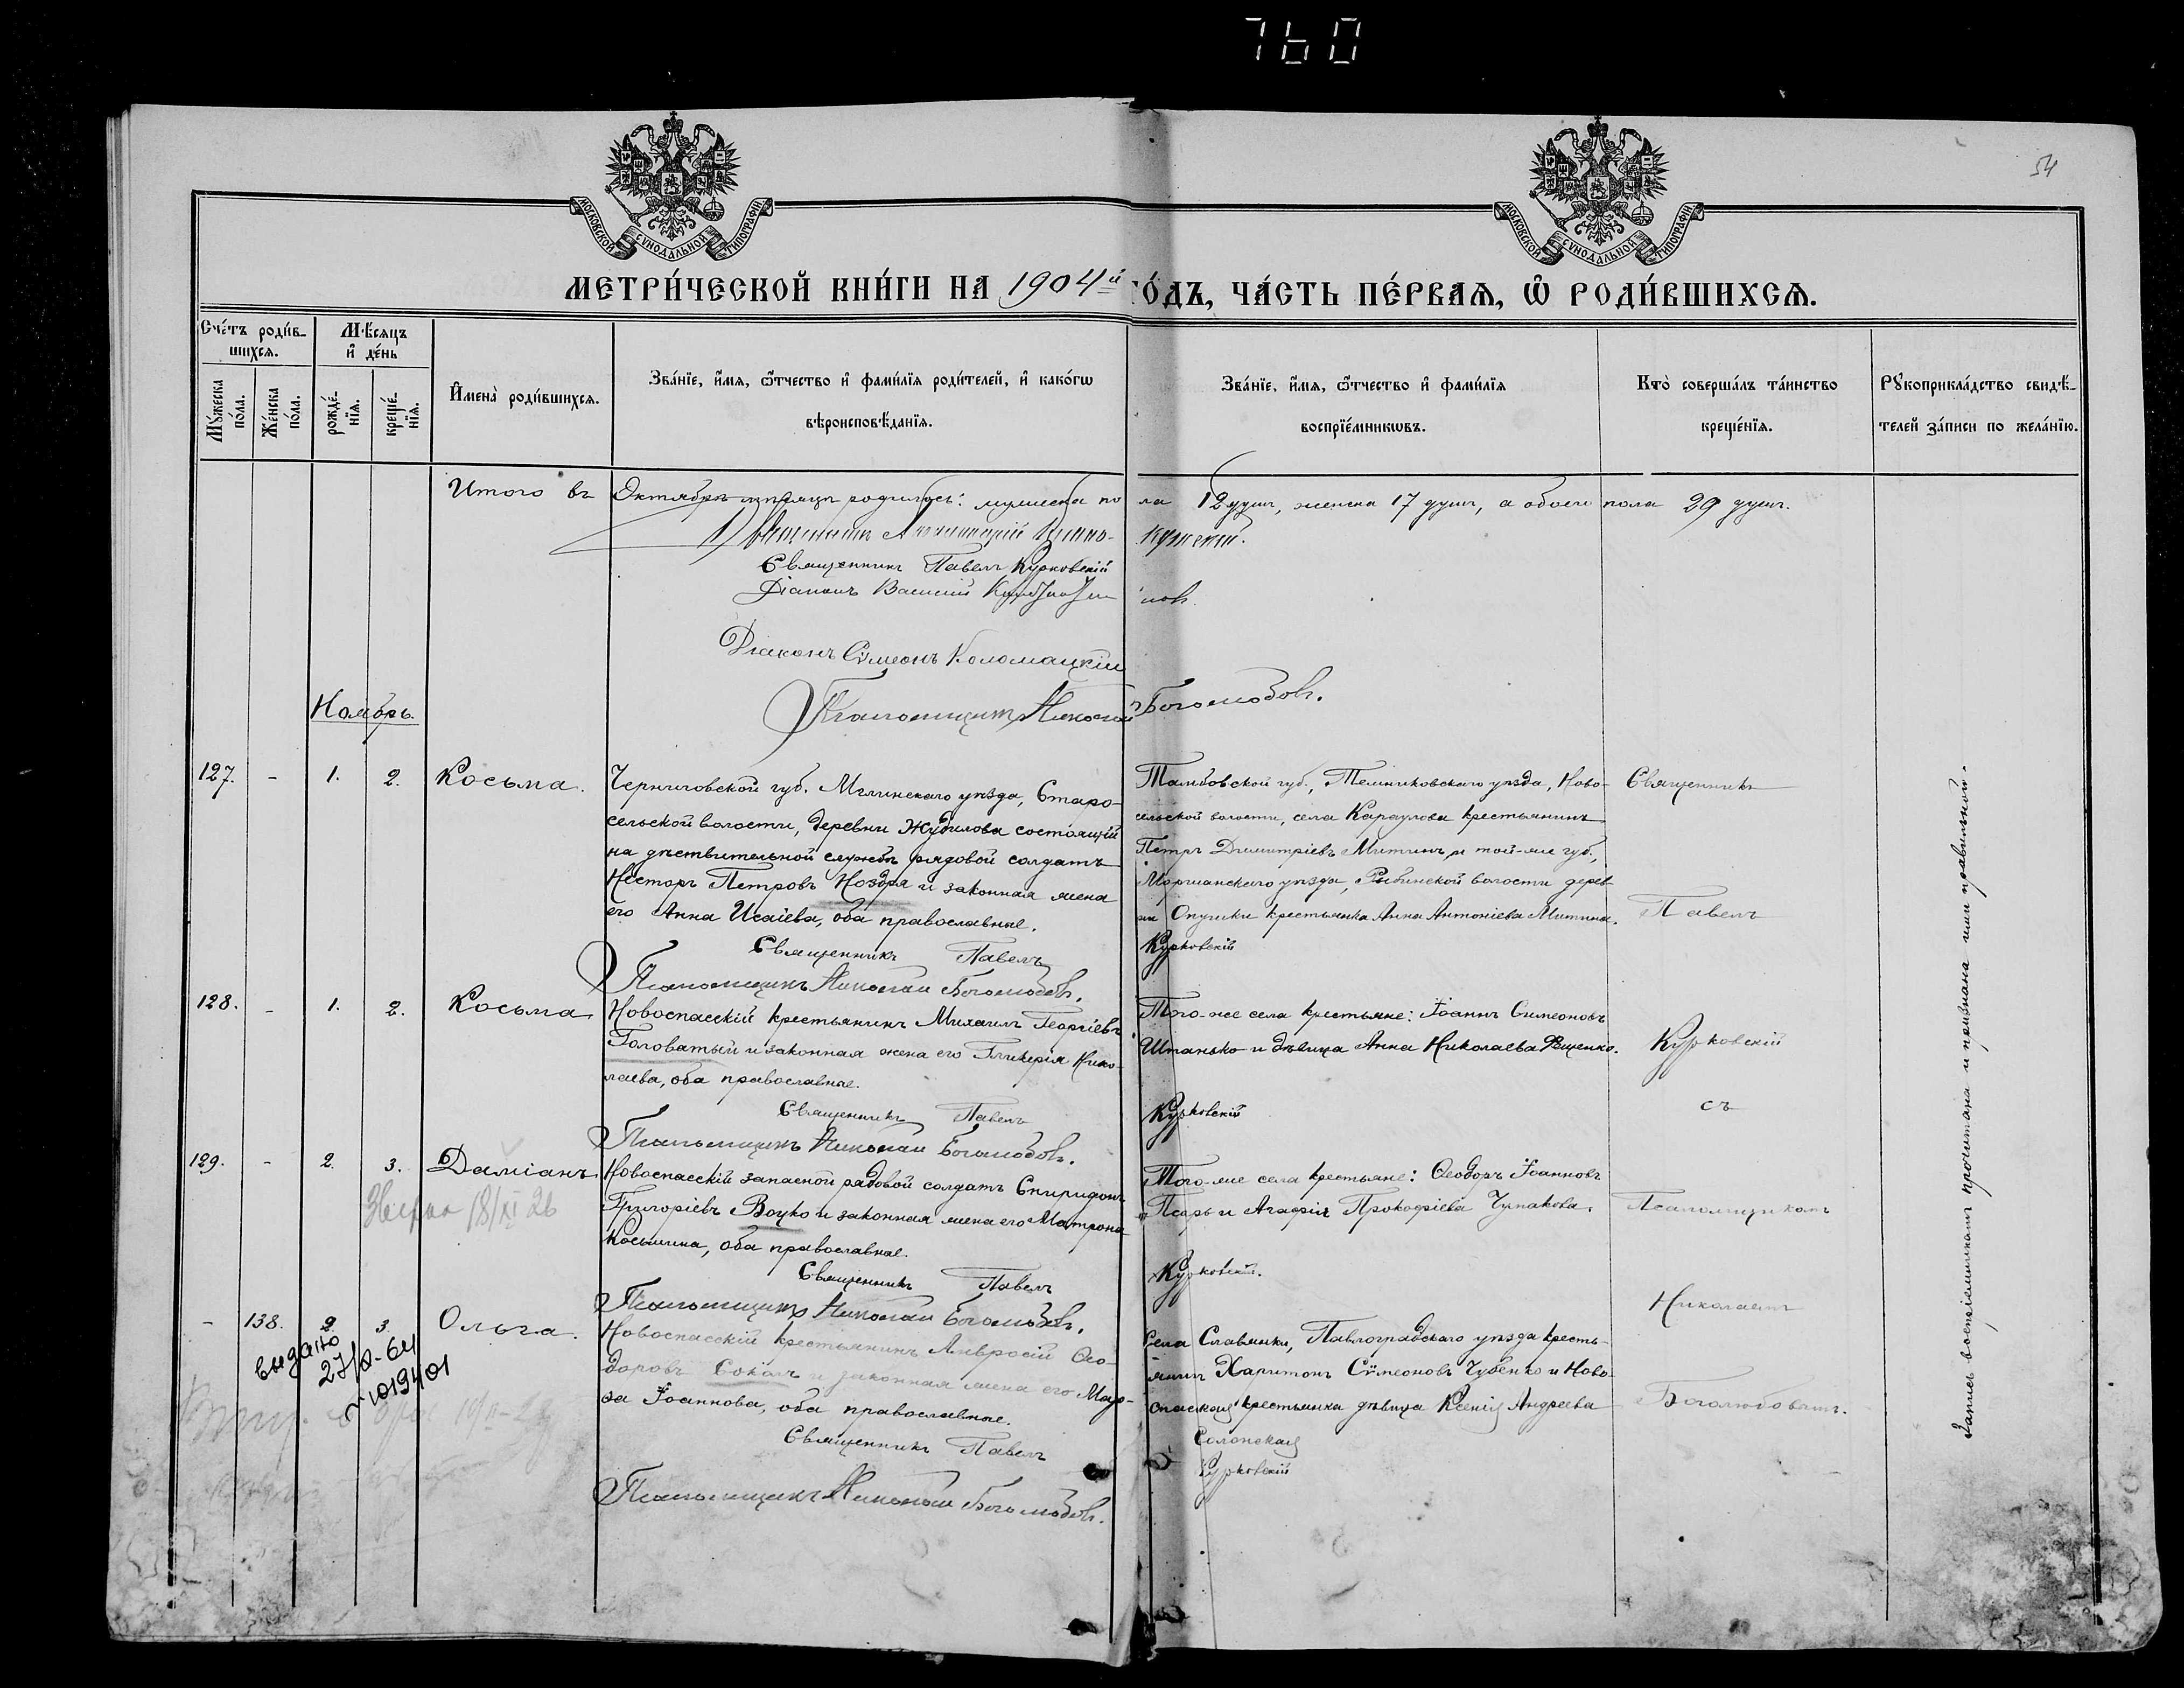 760
54
МОСКОВСКОЙ СѴНОДАЛЬНОЙ ТИПОГРАФІИ
МОСКОВСКОЙ СѴНОДАЛЬНОЙ ТИПОГРАФІИ
МЕТРИ́ЧЕСКОЙ КНИ́ГИ НА 1904й ГО́ДЪ, ЧА́СТЬ ПЕ́РВАѦ, Ѡ҆ РОДИ́ВШИХСѦ.
Сче́тъ роди́в-
шихсѧ.
Мꙋ́жеска
по́ла.
Же́нска
по́ла.
Мѣ́сѧцъ
и҆ де́нь
рожде́-
нїѧ.
креще́-
нїѧ.
И҆мена̀ роди́вшихсѧ.
Зва́нїе, и҆́мѧ, ѻ҆́тчество и҆ фами́лїѧ роди́телей, и҆ како́гѡ
вѣроисповѣ́данїѧ.
Зва́нїе, и҆́мѧ, ѻ҆́тчество и҆ фами́лїѧ
воспрїе́мникѡвъ.
Кто̀ соверша́лъ та́инство
креще́нїѧ.
Рꙋкоприкла́дство свидѣ́-
телей за́писи по жела́нїю.
Итого въ Октябрѣ мѣсяцѣ родилось: мужеска пола 12 душъ, женска 17 душъ, а обоего пола 29 душъ.
Священникъ Павелъ Курковскій
Діаконъ Василій
Діаконъ Сѵмеонъ Коломацкій
Псаломщикъ Николай Боголюбовъ.
Ноябрь.
127. - 1. 2. Косьма.
Черниговской губ. Мглинскаго уѣзда, Старо-
сельской волости, деревни Жудилова состоящій
на дѣствительной службѣ рядовой солдатъ
Несторъ Петровъ Ноздря и законная жена
его Анна Исаіева, оба православные.
Священникъ Павелъ Курковскій
Псаломщикъ Николай Боголюбовъ.
Тамбовской губ., Темниковскаго уѣзда, Ново-
сельской волости, села Караулова крестьянинъ
Петръ Димитріевъ Митинъ, и той-же губ.,
Моршанскаго уѣзда, Рыбинской волости дерев-
ни Опушки крестьянка Анна Антоніева Митина.
Священникъ
Павелъ
Курковскій
съ
Псаломщикомъ
Николаемъ
Боголюбовымъ.
128. - 1. 2. Косьма
Новоспасскій крестьянинъ Михаилъ Георгіевъ
Головатый и законная жена его Гликерія Нико-
лаева, оба православные.
Священникъ Павелъ Курковскій
Псаломщикъ Николай Боголюбовъ.
Того-же села крестьяне: Іоаннъ Симеоновъ
Шпанько и дѣвица Анна Николаева Ященко.
129. - 2. 3. Даміанъ
18/XI 26
Новоспасскій запасной рядовой солдатъ Спиридонъ
Григоріевъ Воуко и законная жена его Матрона
Косьмина, оба православные.
Священникъ Павелъ Курковскій.
Псаломщикъ Николай Боголюбовъ.
Того-же села крестьяне: Ѳеодоръ Іоанновъ
Псарь и Агафія Прокофіева Чумакова.
- 138. 2. 3. Ольга.
выдано
019401
Новоспасскій крестьянинъ Амвросій Ѳео-
доровъ Соколъ и законная жена его Мар-
ѳа Іоаннова, оба православные.
Священникъ Павелъ Курковскій
Псаломщикъ Николай Боголюбовъ.
Села Славянки, Павлоградскаго уѣзда кресть-
янинъ Харитонъ Сѵмеоновъ Чубенко и Ново-
спаская крестьянка дѣвица Ксенія Андреева
Солонская
Запись воспріемникамъ прочитана и признана ими правильной.